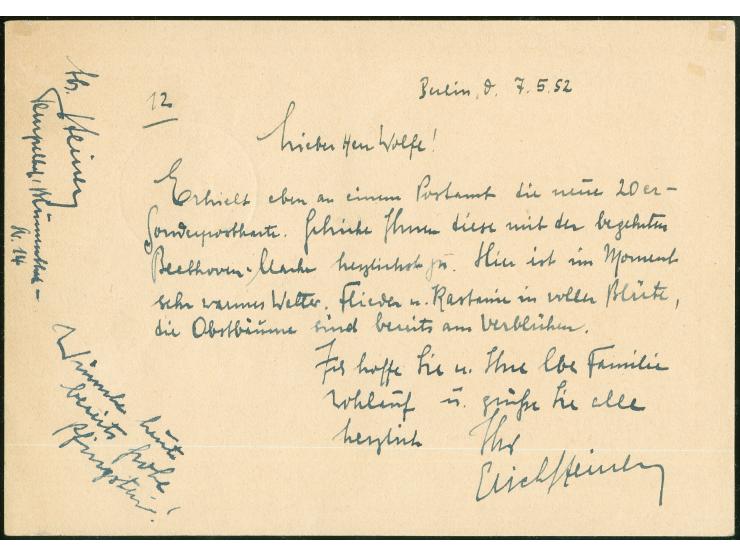 Berlin, d. 7.5.52
12
Lieber Herr Wolfe!
Erhielt eben an einem Postamt die neue 20er-
Sonderpostkarte. Schicke Ihnen diese mit der begehrten
Beethoven-Marke herzlichst zu. Hier ist im Moment
sehr warmes Wetter. Flieder u. Kastanie in voller Blüte,
die Obstbäume sind bereits am Verblühen.
Ich hoffe Sie u. Ihre lbe Familie
wohlauf u. grüße Sie alle
herzlich Ihr
Erich Steiner
Abs. Steiner
Tempelhof, Blumenthal-
Nr. 14
Wünsche heute
bereits frohe
Pfingsten!